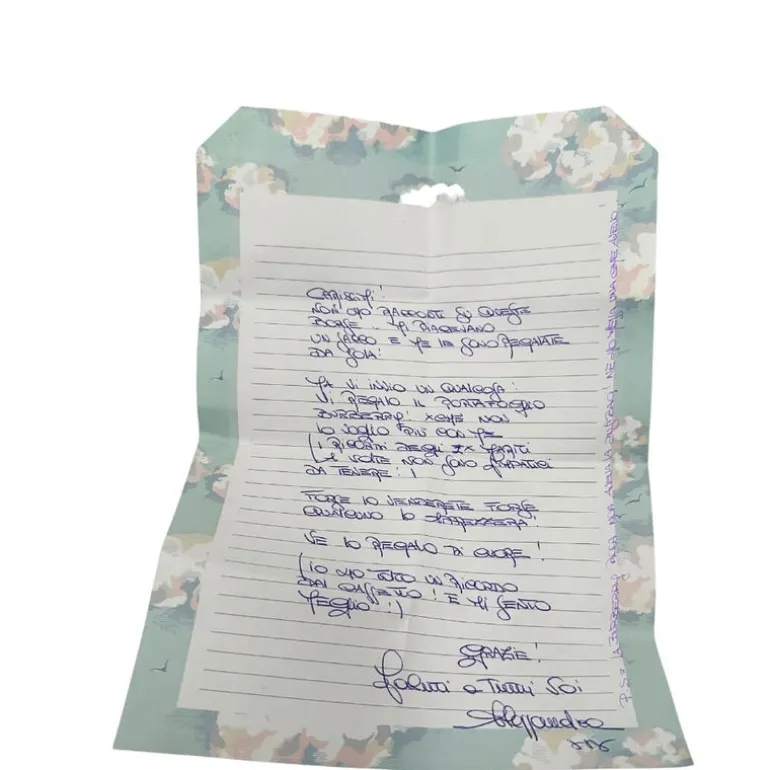 CARISSIMI!
NON HO RACCONTI SU QUESTE
BORSE .. MI PIACEVANO
UN SACCO E ME LE SONO REGALATE
DA SOLA!
MA VI INVIO UN QUALCOSA!
VI REGALO IL PORTAFOGLIO
BURBERRY! XCHÈ NON
LO VOGLIO PIÙ CON ME
(I RICORDI DEGLI EX MARITI
A VOLTE NON SONO SIMPATICI
DA TENERE!)
FORSE LO VENDERETE FORSE
QUALCUNO LO APPREZZERÀ!
VE LO REGALO DI CUORE!
(IO HO TOLTO UN RICORDO
DAI CASSETTO! E MI SENTO
MEGLIO!)
GRAZIE!
Saluti a Tutti Voi
Alessandra
P.S.